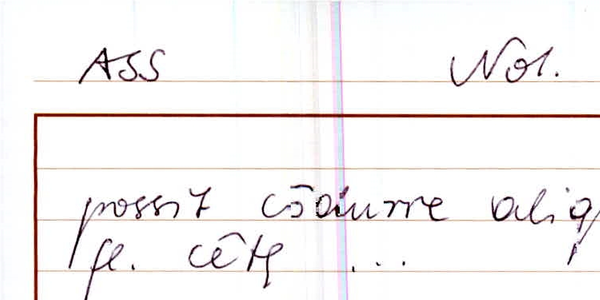 ASS Not.
possit cōdiurre aliq
fl. cētȩ ...